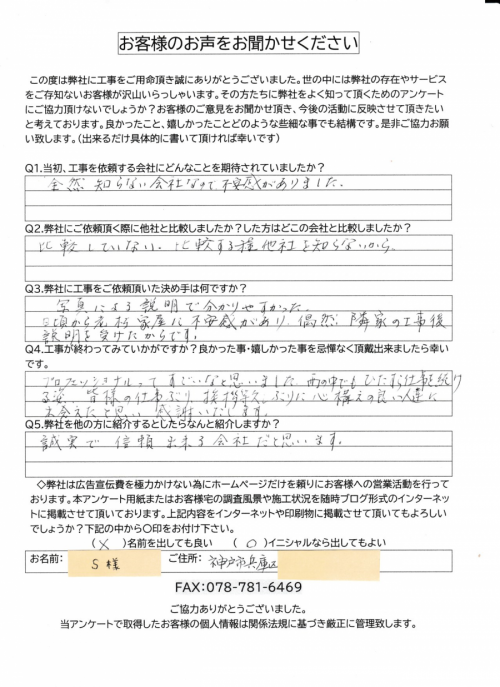 お客様のお声をお聞かせください
この度は弊社に工事をご用命頂き誠にありがとうございました。世の中には弊社の存在やサービス
をご存知ないお客様が沢山いらっしゃいます。その方たちに弊社をよく知って頂くためのアンケート
にご協力頂けないでしょうか？お客様のご意見をお聞かせ頂き、今後の活動に反映させて頂きたい
と考えております。良かったこと、嬉しかったことどのような些細な事でも結構です。是非ご協力お願
い致します。（出来るだけ具体的に書いて頂ければ幸いです）
Q1.当初、工事を依頼する会社にどんなことを期待されていましたか？
全然知らない会社なので不安感がありました。
Q2.弊社にご依頼頂く際に他社と比較しましたか？した方はどこの会社と比較しましたか？
比較していない。比較する程他社を知らないから。
Q3.弊社に工事をご依頼頂いた決め手は何ですか？
写真による説明で分かりやすかった。
日頃から老朽家屋に不安感があり、偶然、隣家の工事後
説明を受けたからです。
Q4.工事が終わってみていかがですか？良かった事・嬉しかった事を忌憚なく頂戴出来ましたら幸い
です。
プロフェッショナルってすごいなと思いました。雨の中でもひたすら仕事を続け
る姿、皆様の仕事ぶり、挨拶等々、ぶりに心構えの良い人達に
出会えたと思い感謝いたします。
Q5.弊社を他の方に紹介するとしたらなんと紹介しますか？
誠実で信頼出来る会社だと思います。
◇弊社は広告宣伝費を極力かけない為にホームページだけを頼りにお客様への営業活動を行って
おります。本アンケート用紙またはお客様宅の調査風景や施工状況を随時ブログ形式のインターネッ
トに掲載させて頂いております。上記内容をインターネットや印刷物に掲載させて頂いてもよろしい
でしょうか？下記の中から〇印をお付け下さい。
（ X ）名前を出しても良い （ O ）イニシャルなら出してもよい
お名前： S様 ご住所： 神戸市兵庫区
FAX：078-781-6469
ご協力ありがとうございました。
当アンケートで取得したお客様の個人情報は関係法規に基づき厳正に管理致します。